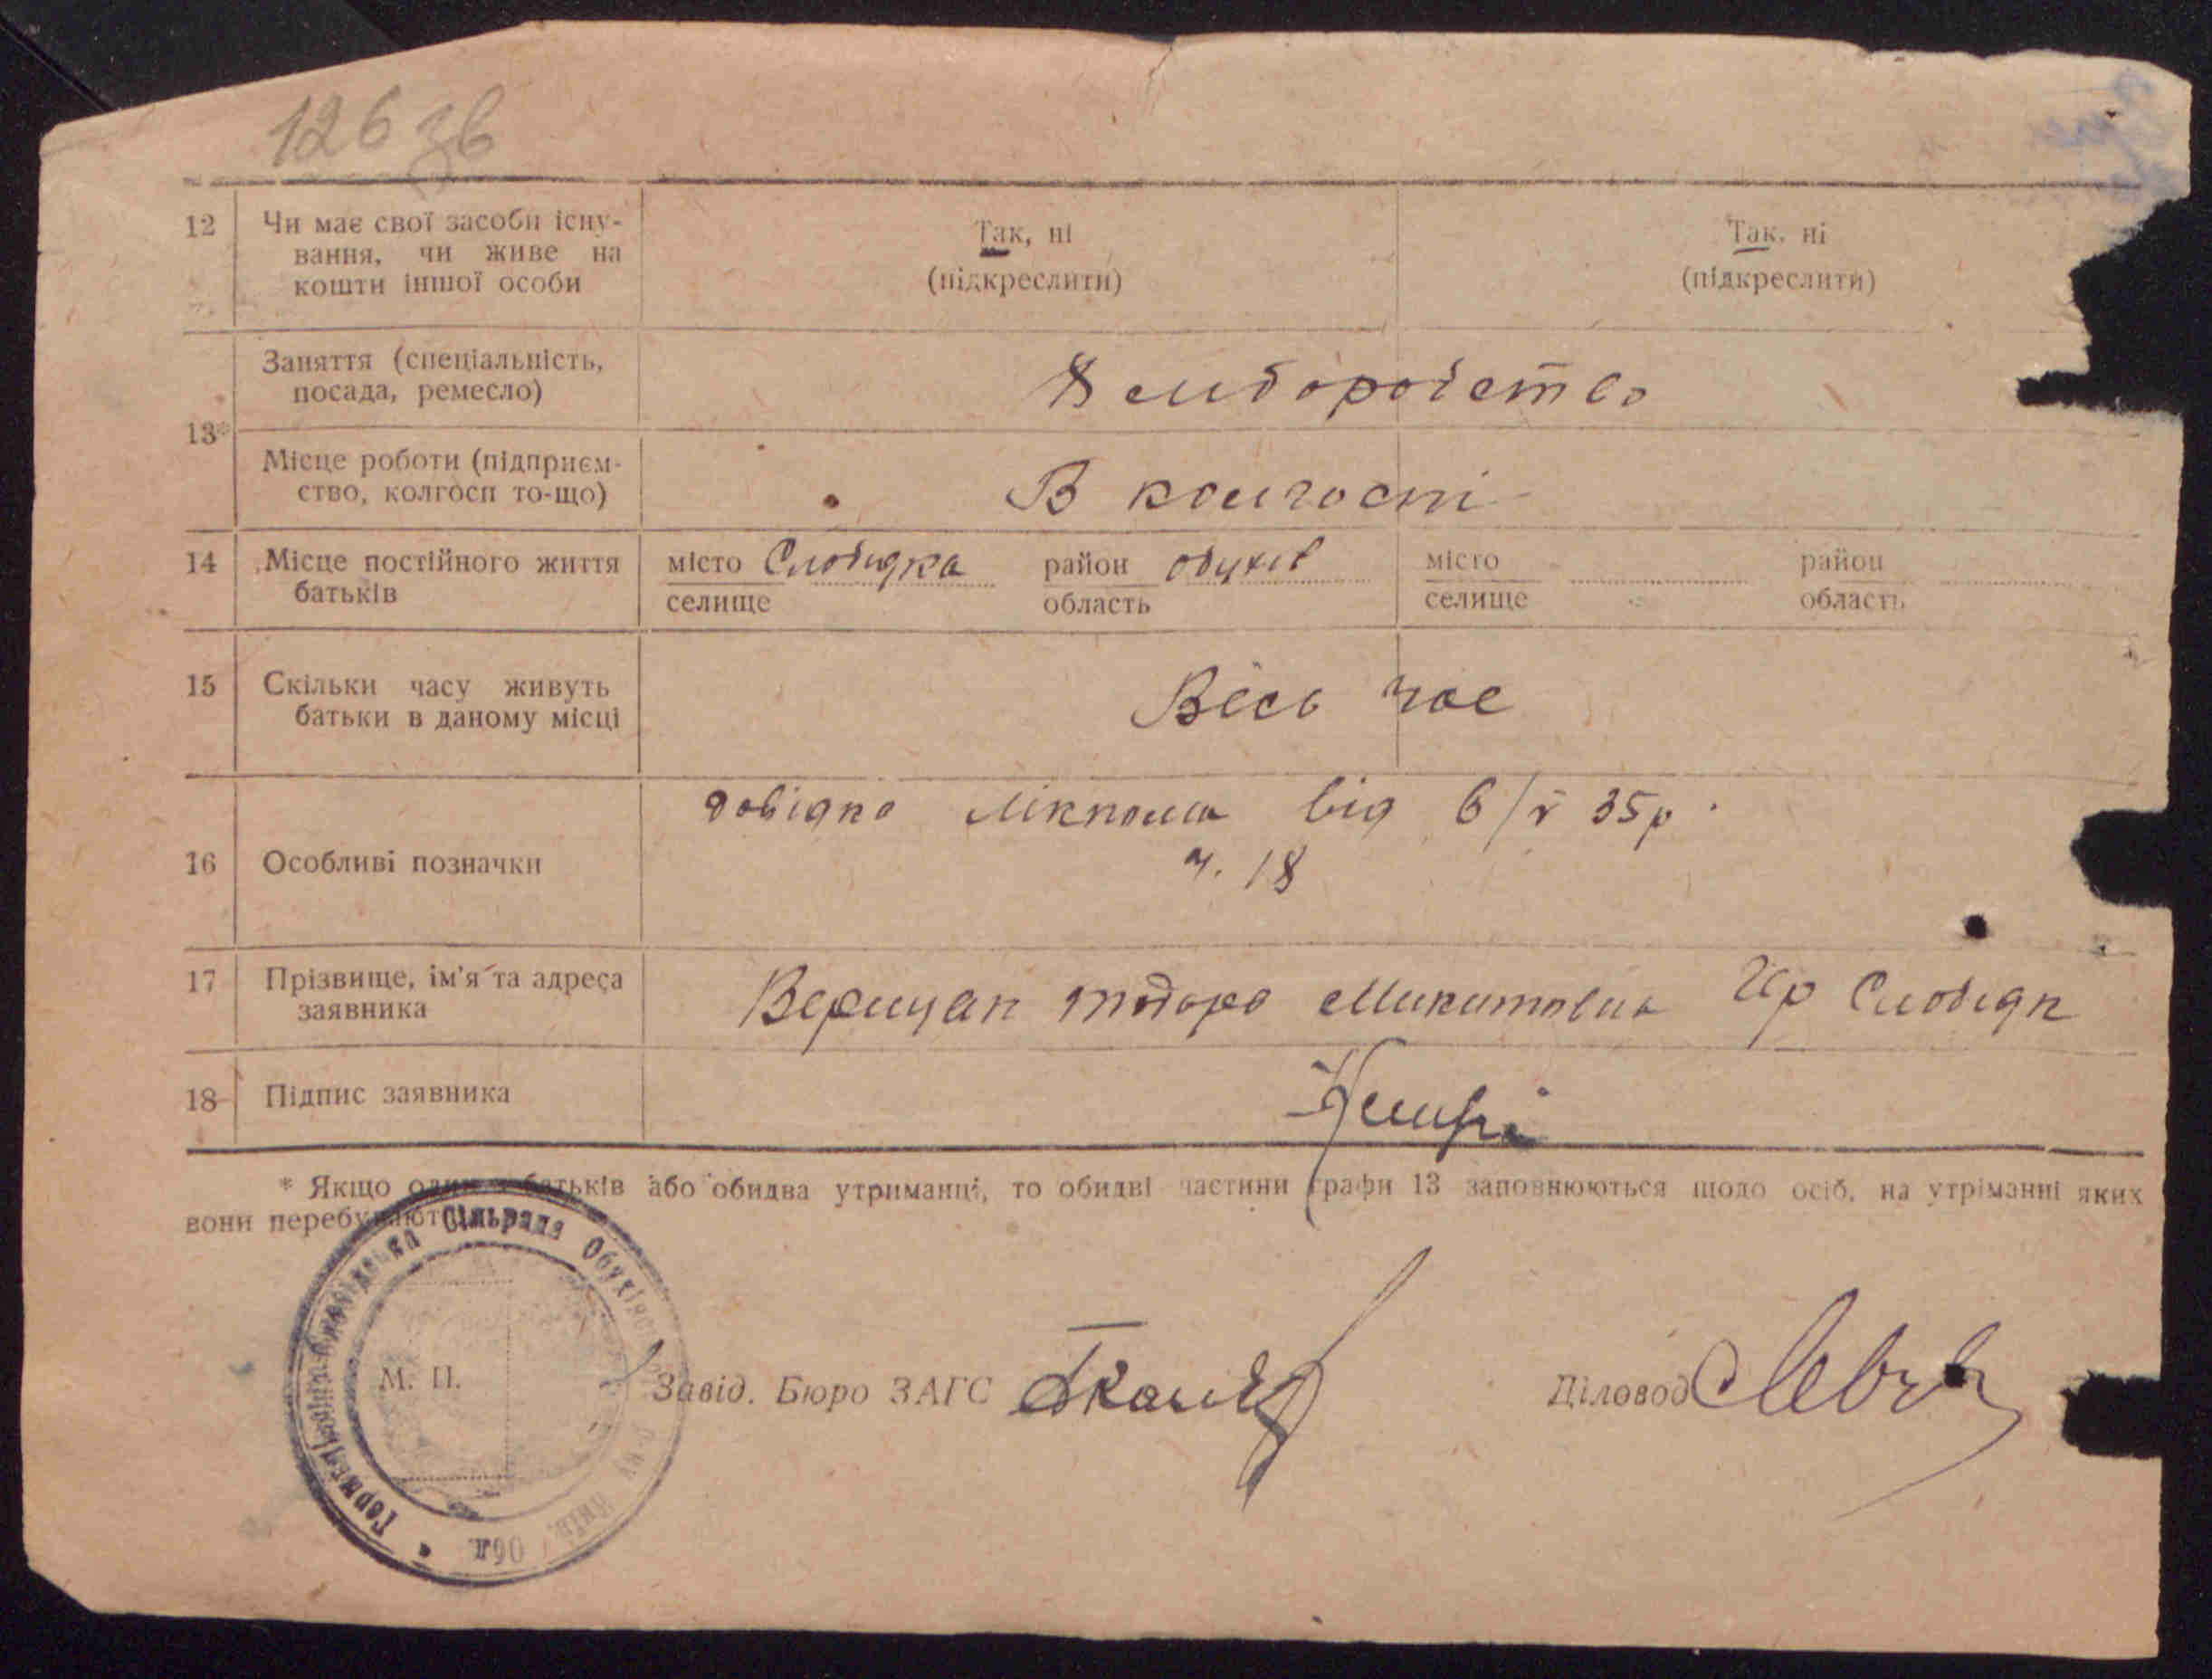 126 зв
12 Чи має свої засоби існу-
вання, чи живе на
кошти іншої особи
Так, ні
(підкреслити)
Так, ні
(підкреслити)
13*
Заняття (спеціальність,
посада, ремесло)
Хлиборобство
Місце роботи (підприєм-
ство, колгосп то-що)
В колгоспі
14 Місце постійного життя
батьків
місто Слобидка район Обухів
селище область
місто район
селище область
15 Скільки часу живуть
батьки в даному місці
Весь час
16 Особливі позначки
довідка лікпома від 6/V 35р.
ч. 18
17 Прізвище, ім'я та адреса
заявника
Тодора Микитовна Гр Слобидк
18 Підпис заявника
* Якщо один з батьків або обидва утриманці, то обидві частини графи 13 заповнюються щодо осіб, на утріманні яких
вони перебувають
Сільрада Обухів Р-ну Київ. Обл.
М. П.
Завід. Бюро ЗАГС
Діловод